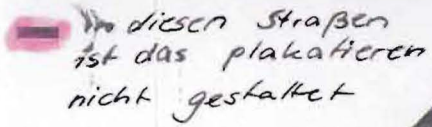 In diesen Straßen
ist das plakatieren
nicht gestattet